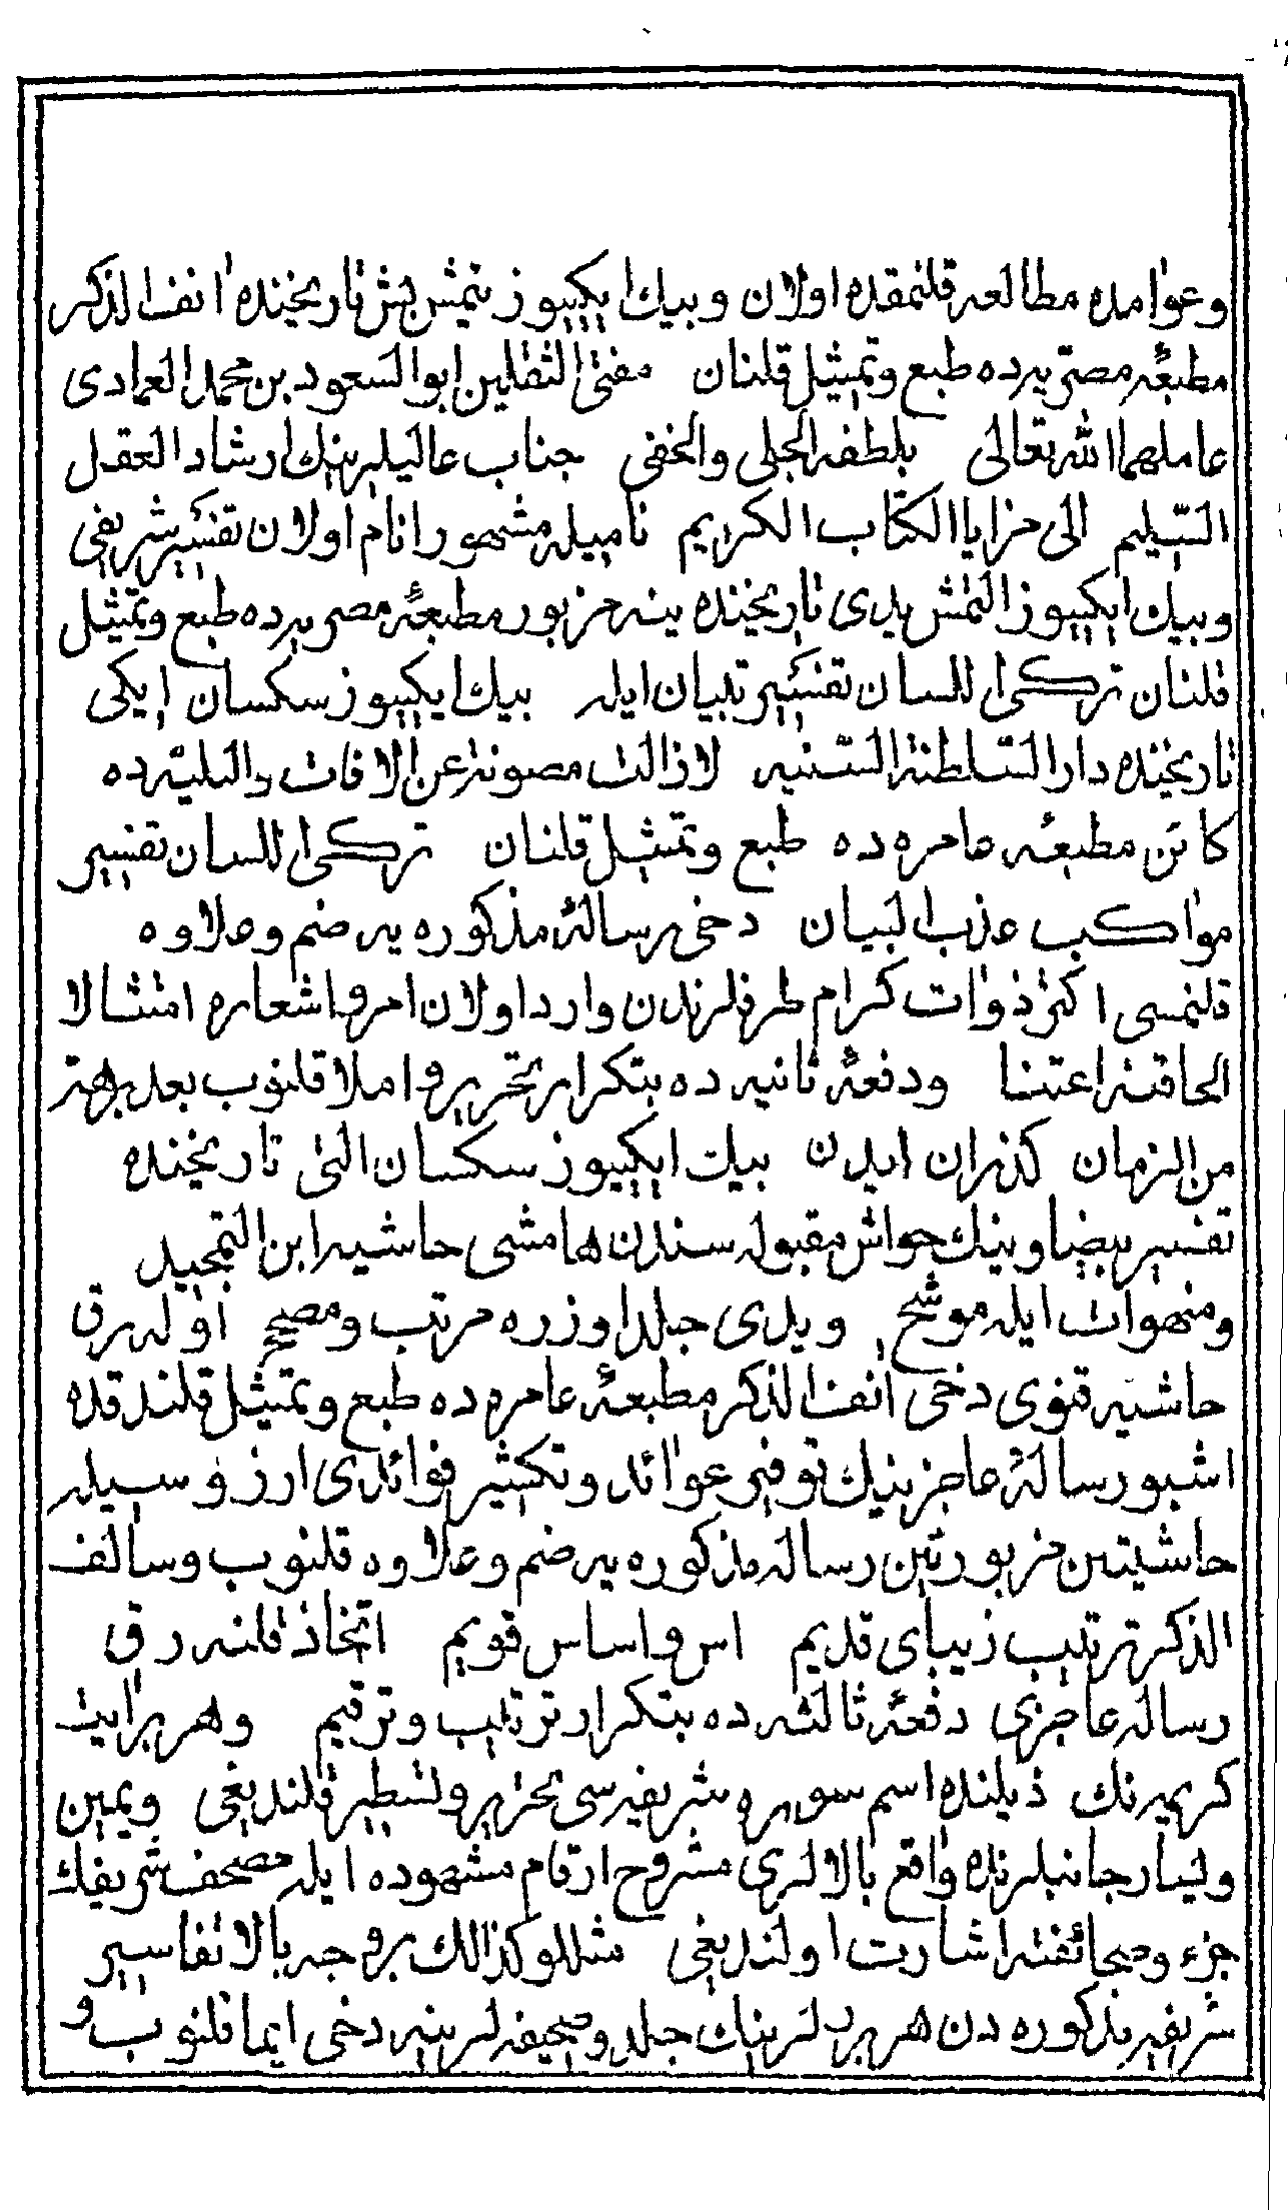 وعوامده مطالعه قلنمقده اولان وبيك ايكييوز يتمش بش تاريخنده آنف الذكر
مطبعۀ مصريه ده طبع وتمثيل قلنان مفتئ الثقلين ابو السعود بن محمد العمادى
عاملهما الله تعالى بلطفه الجلى والخفى جناب عاليلرينك ارشاد العقل
السّليم الى مزايا الكتاب الكريم ناميله مشهور انام اولان تفسير شريفى
وبيك ايكييوز التمش يدى تاريخنده ينه مزبور مطبعۀ مصريه ده طبع وتمثيل
قلنان تركى اللسان تفسير تبيان ايله بيك ايكييوز سكسان ايكى
تاريخنده دار السّلطنة السّنيه لازالت مصونة عن الافات والبليّه ده
كائن مطبعۀ عامره ده طبع وتمثيل قلنان تركى اللسان تفسير
مواكب عذب البيان دخى رسالۀ مذكوره يه ضم وعلاوه
قلنمسى اكثر ذوات كرام طرفلرندن وارد اولان امر واشعاره امتثالا
الحاقنه اعتنا ودفعۀ ثانيه ده بتكرار تحرير و املا قلنوب بعد برهة
من الزمان كذران ايدن بيك ايكييوز سكسان التى تاريخنده
تفسير بيضاوينك حواش مقبوله سندن هامشى حاشيه ابن التمجيد
ومنهوات ايله موشح ويدى جلد اوزره مرتب ومصحح اوله رق
حاشيه قنوى دخى آنف الذكر مطبعۀ عامره ده طبع وتمثيل قلندقده
اشبو رسالۀ عاجزينك توفير عوائد وتكثير فوائدى ارزوسيله
حاشيتين مزبورتين رساله مذكوره يه ضم وعلاوه قلنوب وسالف
الذكر ترتيب زيباى قديم اس و اساس قويم اتخاذ قلنه رق
رساله عاجزى دفعۀ ثالثه ده بتكرار ترتيب وترقيم وهر بر ايت
كريمه نك ذيلنده اسم سوره شريفه سى تحرير وتسطير قلنديغى ويمين
ويسار جانبلرنده واقع بالالرى مشروح ارقام مشهوده ايله مصحف شريفك
جزء وصحائفنه اشارت اولنديغى مثللو كذالك بروجه بالا تفاسير
شريفه مذكوره دن هر برلرينك جلد وصحيفه لرينه دخى ايما قلنوب و